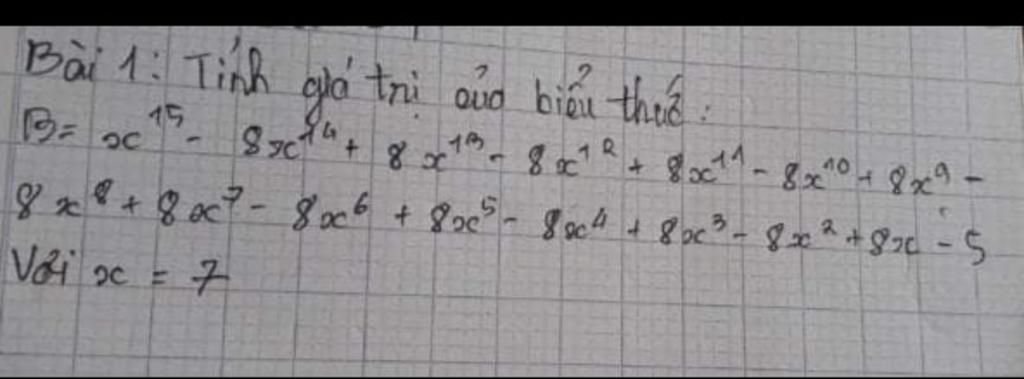 Bài 1: Tính giá trị của biểu thức:
B = x¹⁵ - 8x¹⁴ + 8x¹³ - 8x¹² + 8x¹¹ - 8x¹⁰ + 8x⁹ -
8x⁸ + 8x⁷ - 8x⁶ + 8x⁵ - 8x⁴ + 8x³ - 8x² + 8x - 5
Với x = 7